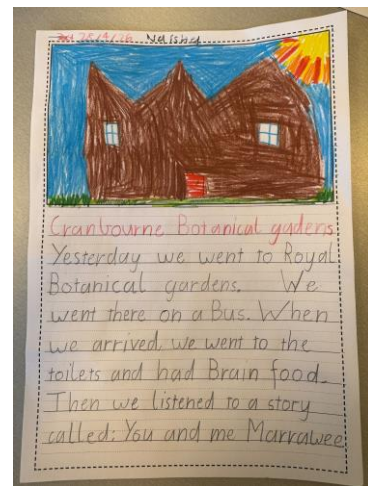 28/4/26
Cranbourne Botanical gadens
Yesterday we went to Royal
Botanical gardens. We
went there on a Bus. When
we arrived we went to the
toilets and had Brain food.
Then we listened to a story
called: You and me Marrawee